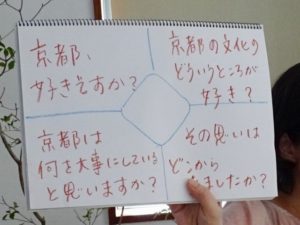 京都、
好きですか？
京都の文化の
どういうところが
好き？
京都は
何を大事にしている
と思いますか？
その思いは
どこから
ましたか？